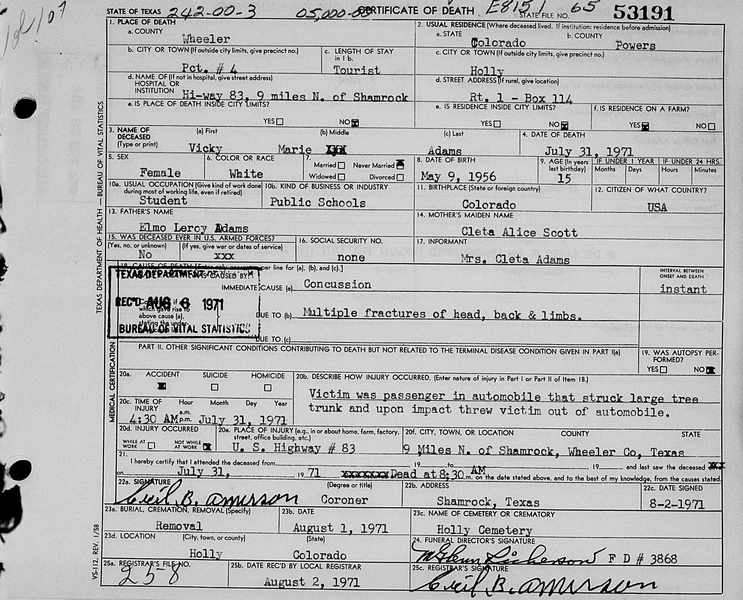 STATE OF TEXAS 242-00-3 05,000-00 CERTIFICATE OF DEATH E8151 STATE FILE NO. 65 53191
1. PLACE OF DEATH
a. COUNTY Wheeler
2. USUAL RESIDENCE (Where deceased lived. If institution: residence before admission)
a. STATE Colorado b. COUNTY Powers
b. CITY OR TOWN (If outside city limits, give precinct no.) Pct. # 4
c. LENGTH OF STAY in 1 b. Tourist
c. CITY OR TOWN (If outside city limits, give precinct no.) Holly
d. NAME OF (If not in hospital, give street address) HOSPITAL OR INSTITUTION Hi-way 83, 9 miles N. of Shamrock
d. STREET ADDRESS (If rural, give location) Rt. 1 - Box 114
e. IS PLACE OF DEATH INSIDE CITY LIMITS? YES NO
e. IS RESIDENCE INSIDE CITY LIMITS? YES NO
f. IS RESIDENCE ON A FARM? YES NO
3. NAME OF DECEASED (Type or print) (a) First Vicky (b) Middle Marie (c) Last Adams
4. DATE OF DEATH July 31, 1971
5. SEX Female
6. COLOR OR RACE White
7. Married Never Married Widowed Divorced
8. DATE OF BIRTH May 9, 1956
9. AGE (In years last birthday) 15
IF UNDER 1 YEAR Months Days
IF UNDER 24 HRS. Hours Minutes
10a. USUAL OCCUPATION (Give kind of work done during most of working life, even if retired) Student
10b. KIND OF BUSINESS OR INDUSTRY Public Schools
11. BIRTHPLACE (State or foreign country) Colorado
12. CITIZEN OF WHAT COUNTRY? USA
13. FATHER'S NAME Elmo Leroy Adams
14. MOTHER'S MAIDEN NAME Cleta Alice Scott
15. WAS DECEASED EVER IN U.S. ARMED FORCES? (Yes, no, or unknown) No (If yes, give war or dates of service) xxx
16. SOCIAL SECURITY NO. none
17. INFORMANT Mrs. Cleta Adams
18. CAUSE OF DEATH line for (a), (b), and (c).
INTERVAL BETWEEN ONSET AND DEATH
IMMEDIATE CAUSE (a) Concussion instant
TEXAS DEPARTMENT
REC'D AUG 6 1971
BUREAU OF VITAL STATISTICS
DUE TO (b) Multiple fractures of head, back & limbs.
DUE TO (c)
PART II. OTHER SIGNIFICANT CONDITIONS CONTRIBUTING TO DEATH BUT NOT RELATED TO THE TERMINAL DISEASE CONDITION GIVEN IN PART I(a)
19. WAS AUTOPSY PERFORMED? YES NO
20a. ACCIDENT SUICIDE HOMICIDE
20b. DESCRIBE HOW INJURY OCCURRED. (Enter nature of injury in Part I or Part II of Item 18.)
Victim was passenger in automobile that struck large tree
trunk and upon impact threw victim out of automobile.
20c. TIME OF INJURY Hour Month Day Year a.m. p.m. 4:30 AM July 31, 1971
20d. INJURY OCCURRED WHILE AT WORK NOT WHILE AT WORK
20e. PLACE OF INJURY (e.g., in or about home, farm, factory, street, office building, etc.) U. S. Highway # 83
20f. CITY, TOWN, OR LOCATION COUNTY STATE 9 Miles N. of Shamrock, Wheeler Co, Texas
21. I hereby certify that I attended the deceased from 19 to 19 and last saw the deceased
on July 31, 1971 Dead at 8:30 AM m. on the date stated above, and to the best of my knowledge, from the causes stated.
22a. SIGNATURE (Degree or title) Cecil B. Amerson Coroner
22b. ADDRESS Shamrock, Texas
22c. DATE SIGNED 8-2-1971
23a. BURIAL, CREMATION, REMOVAL (Specify) Removal
23b. DATE August 1, 1971
23c. NAME OF CEMETERY OR CREMATORY Holly Cemetery
23d. LOCATION (City, town, or county) (State) Holly Colorado
24. FUNERAL DIRECTOR'S SIGNATURE F D # 3868
25a. REGISTRAR'S FILE NO. 25-8
25b. DATE REC'D BY LOCAL REGISTRAR August 2, 1971
25c. REGISTRAR'S SIGNATURE Cecil B. Amerson
TEXAS DEPARTMENT OF HEALTH — BUREAU OF VITAL STATISTICS
MEDICAL CERTIFICATION
VS-112, REV. 1/58